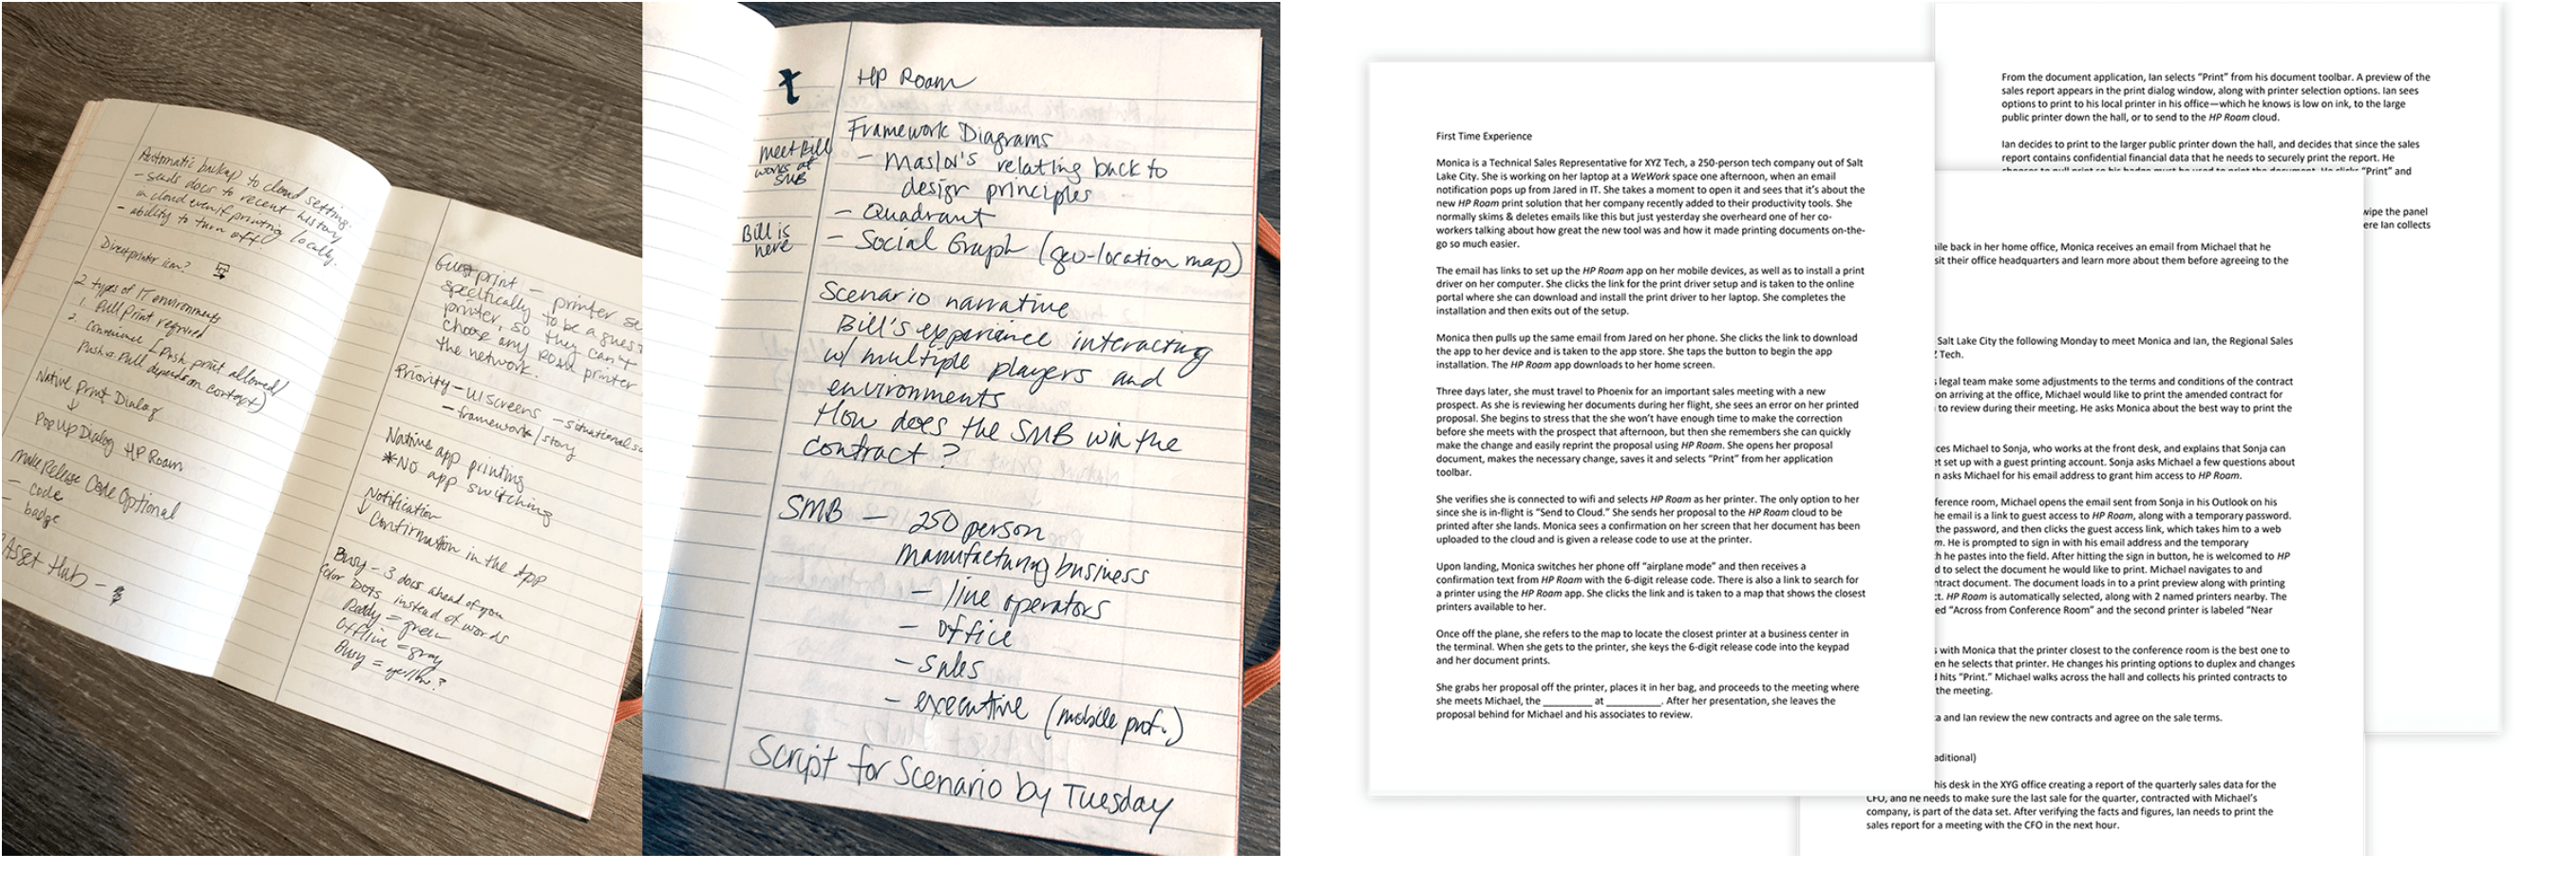 Automatic backup to cloud setting.
- sends docs to recent history
in cloud even if printing locally.
- ability to turn off
Direct printer icon?
2 types of IT environments
1. Pull Print required
2. Convenience [Push print allowed/
Push or Pull depends on context)
Native Print Dialog
↓
Pop Up Dialog HP Roam
Make Release Code Optional
- code
- badge
Asset Hub -
Guest print - printer se
specifically to be a guest
printer, so they can't
choose any Roam printer
the network.
Priority - UI screens - situational
- framework/story
Native app printing
*No app switching
Notification
↓ Confirmation in the App
Busy - 3 docs ahead of you
Color Dots instead of words
Ready = green
Offline = gray
Busy = yellow?
HP Roam
Framework Diagrams
- Maslow's relating back to
design principles
- Quadrant
- Social Graph (geo-location map)
meet Bill
works at
SMB
Bill is
here
Scenario narrative
Bill's experience interacting
w/ multiple players and
environments
How does the SMB win the
contract?
SMB - 250 person
manufacturing business
- line operators
- office
- sales
- executive (mobile prof.)
Script for Scenario by Tuesday
First Time Experience
Monica is a Technical Sales Representative for XYZ Tech, a 250-person tech company out of Salt
Lake City. She is working on her laptop at a WeWork space one afternoon, when an email
notification pops up from Jared in IT. She takes a moment to open it and sees that it's about the
new HP Roam print solution that her company recently added to their productivity tools. She
normally skims & deletes emails like this but just yesterday she overheard one of her co-
workers talking about how great the new tool was and how it made printing documents on-the-
go so much easier.
The email has links to set up the HP Roam app on her mobile devices, as well as to install a print
driver on her computer. She clicks the link for the print driver setup and is taken to the online
portal where she can download and install the print driver to her laptop. She completes the
installation and then exits out of the setup.
Monica then pulls up the same email from Jared on her phone. She clicks the link to download
the app to her device and is taken to the app store. She taps the button to begin the app
installation. The HP Roam app downloads to her home screen.
Three days later, she must travel to Phoenix for an important sales meeting with a new
prospect. As she is reviewing her documents during her flight, she sees an error on her printed
proposal. She begins to stress that the she won't have enough time to make the correction
before she meets with the prospect that afternoon, but then she remembers she can quickly
make the change and easily reprint the proposal using HP Roam. She opens her proposal
document, makes the necessary change, saves it and selects "Print" from her application
toolbar.
She verifies she is connected to wifi and selects HP Roam as her printer. The only option to her
since she is in-flight is "Send to Cloud." She sends her proposal to the HP Roam cloud to be
printed after she lands. Monica sees a confirmation on her screen that her document has been
uploaded to the cloud and is given a release code to use at the printer.
Upon landing, Monica switches her phone off "airplane mode" and then receives a
confirmation text from HP Roam with the 6-digit release code. There is also a link to search for
a printer using the HP Roam app. She clicks the link and is taken to a map that shows the closest
printers available to her.
Once off the plane, she refers to the map to locate the closest printer at a business center in
the terminal. When she gets to the printer, she keys the 6-digit release code into the keypad
and her document prints.
She grabs her proposal off the printer, places it in her bag, and proceeds to the meeting where
she meets Michael, the __________ at ___________. After her presentation, she leaves the
proposal behind for Michael and his associates to review.
From the document application, Ian selects "Print" from his document toolbar. A preview of the
sales report appears in the print dialog window, along with printer selection options. Ian sees
options to print to his local printer in his office—which he knows is low on ink, to the large
public printer down the hall, or to send to the HP Roam cloud.
Ian decides to print to the larger public printer down the hall, and decides that since the sales
report contains confidential financial data that he needs to securely print the report. He
"Print" and
wipe the panel
ere Ian collects
ile back in her home office, Monica receives an email from Michael that he
sit their office headquarters and learn more about them before agreeing to the
Salt Lake City the following Monday to meet Monica and Ian, the Regional Sales
Tech.
legal team make some adjustments to the terms and conditions of the contract
on arriving at the office, Michael would like to print the amended contract for
to review during their meeting. He asks Monica about the best way to print the
ces Michael to Sonja, who works at the front desk, and explains that Sonja can
et set up with a guest printing account. Sonja asks Michael a few questions about
asks Michael for his email address to grant him access to HP Roam.
ference room, Michael opens the email sent from Sonja in his Outlook on his
he email is a link to guest access to HP Roam, along with a temporary password.
the password, and then clicks the guest access link, which takes him to a web
m. He is prompted to sign in with his email address and the temporary
h he pastes into the field. After hitting the sign in button, he is welcomed to HP
d to select the document he would like to print. Michael navigates to and
ntract document. The document loads in to a print preview along with printing
t. HP Roam is automatically selected, along with 2 named printers nearby. The
ed "Across from Conference Room" and the second printer is labeled "Near
with Monica that the printer closest to the conference room is the best one to
en he selects that printer. He changes his printing options to duplex and changes
hits "Print." Michael walks across the hall and collects his printed contracts to
the meeting.
a and Ian review the new contracts and agree on the sale terms.
aditional)
his desk in the XYG office creating a report of the quarterly sales data for the
CFO, and he needs to make sure the last sale for the quarter, contracted with Michael's
company, is part of the data set. After verifying the facts and figures, Ian needs to print the
sales report for a meeting with the CFO in the next hour.